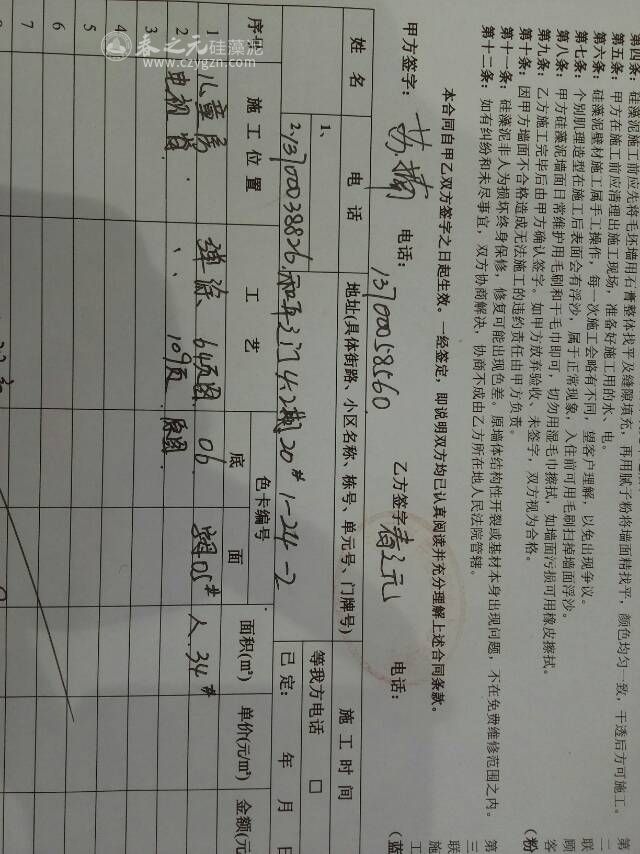 第四条：硅藻泥施工前应先将毛坯墙用石膏整体找平及缝隙填充，再用腻子粉将墙面精找平，颜色均匀一致，干透后方可施工。
第五条：甲方在施工前应清理出施工现场，准备好施工用的水、电。
第六条：硅藻泥壁材施工属手工操作，每一次施工会略有不同，望客户理解，以免出现争议。
第七条：个别肌理造型在施工后表面会有浮沙，属于正常现象，入住前可用毛刷扫掉墙面浮沙。
第八条：甲方硅藻泥墙面日常维护用毛刷和干毛巾即可，切勿用湿毛巾擦拭，如墙面污损可用橡皮擦拭。
第九条：乙方施工完毕后由甲方确认签字。如甲方放弃验收、未签字，双方视为合格。
第十条：因甲方墙面不合格造成无法施工的违约责任由甲方负责。
第十一条：硅藻泥非人为损坏终身保修，修复可能出现色差。原墙体结构性开裂或基材本身出现问题，不在免费维修范围之内。
第十二条：如有纠纷和未尽事宜，双方协商解决，协商不成由乙方所在地人民法院管辖。
本合同自甲乙双方签字之日起生效。一经签定，即说明双方均已认真阅读并充分理解上述合同条款。
甲方签字： 电话：13700058560 乙方签字 春之元 电话：
姓名 电话 地址(具体街路、小区名称、栋号、单元号、门牌号) 施工时间
1、
2、13700038826 20# 1-24-2
等我方电话 □
已定： 年 月 日
序号 施工位置 工艺 色卡编号 面积(㎡) 单价(元/㎡) 金额(元
底 面
1 儿童房 弹涂 64页图 06 05# 34#
2 电视背 109页 原图
3
4
5
6
7
春之元硅藻泥
www.czygzn.com
第
二
联
顾
客
(粉
第
三
联
施
工
(蓝